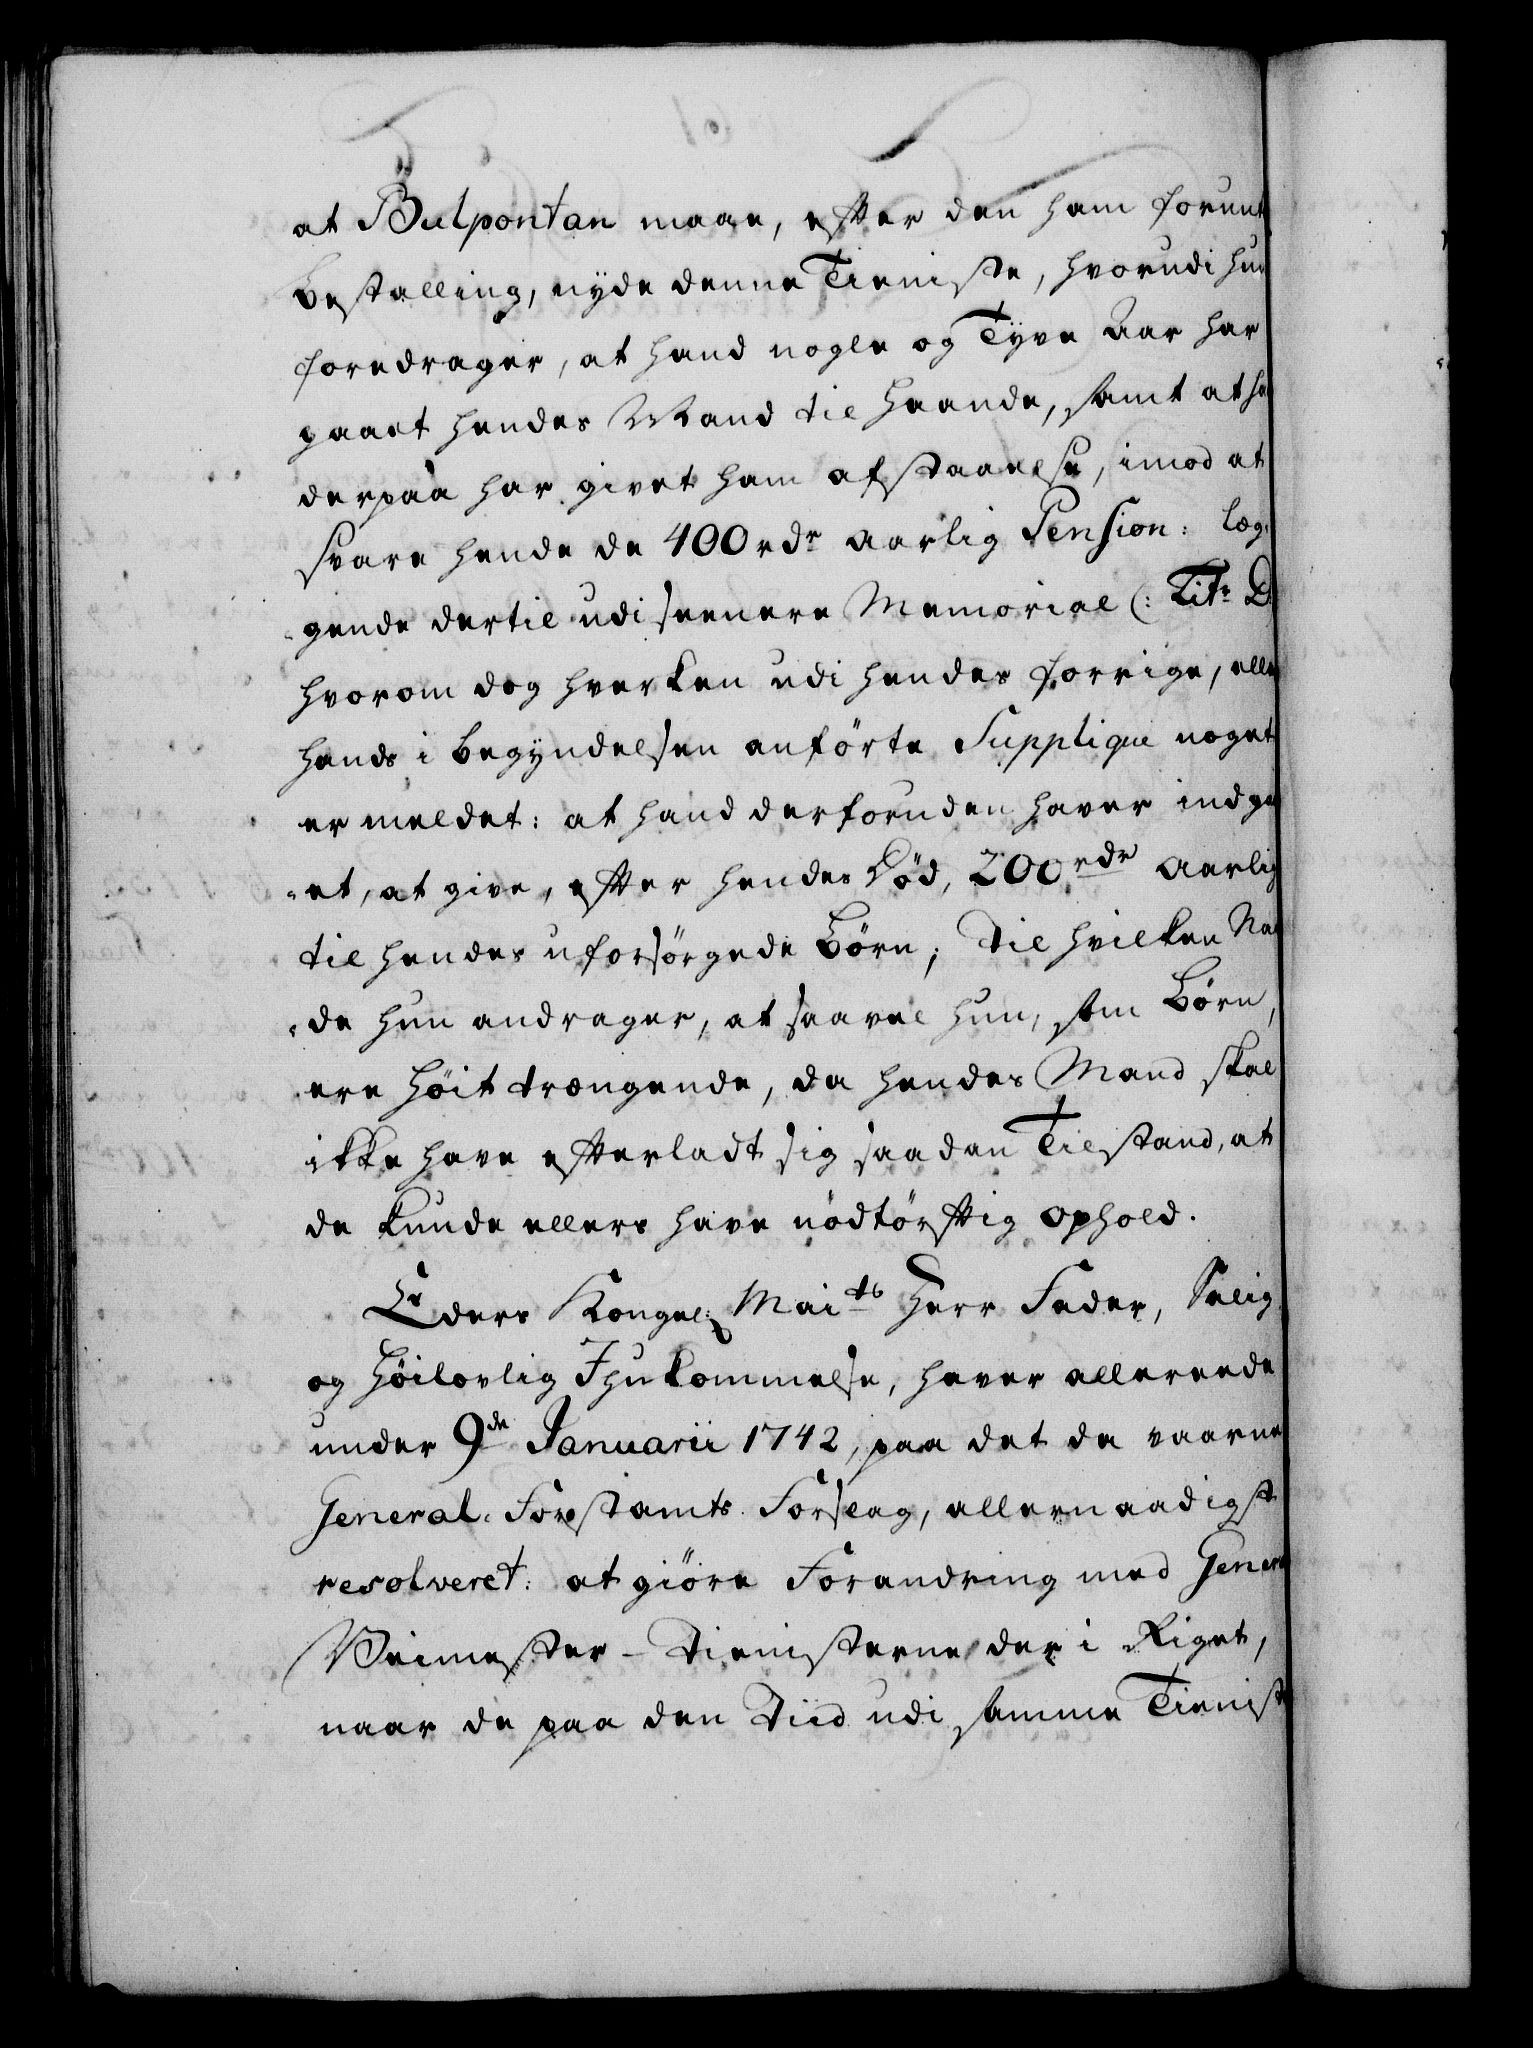 at Bulpontan maae, efter den ham forunt
Bestalling, nyde denne Tieniste, hvorudi hun
foredrager, at hand nogle og Tyve Aar har
gaaet hendes Mand til Haande, samt at ha
derpaa har givet ham afstaaelse, imod at
svare hende de 400 rdr aarlig Pension: læg-
-gende dertil udi seenere Memorial (: Litr D
hvorom dog hverken udi hendes forrige, elle
hands i Begyndelsen anførte Supplique noget
er meldet: at hand derforuden haver indga
-et, at give, efter hendes Død, 200 rdr Aarlig
til hendes uforsørgede Børn; til hvilken Na
-de hun andrager, at saavel hun, som Børn,
ere høit trængende, da hendes Mand skal
ikke have efterladt sig saadan Tilstand, at
de kunde ellers have nødtørftig ophold.
Eders Kongel: Maits Herr Fader, Salig
og Høilovlig Ihukommelse, haver allereede
under 9de Januarii 1742, paa det da værne
General-Forstamts Forslag, allernaadigst
resolveret: at giøre Forandring med Genera
Veimester-Tienisterne der i Riget,
naar de paa den Tiid udi samme Tienist